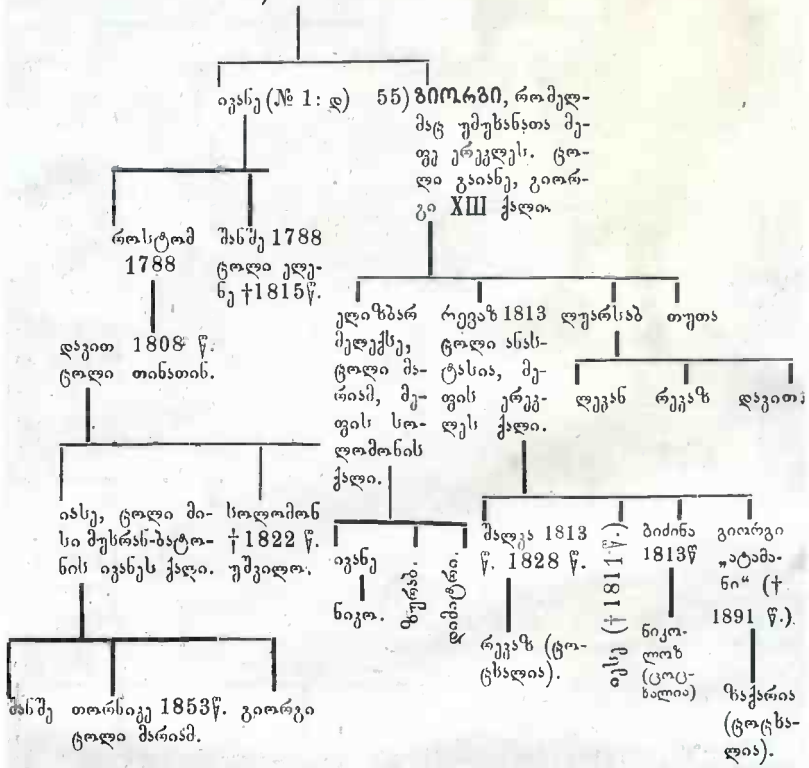 ივანე (№ 1: დ)
55) ᲒᲘᲝᲠᲒᲘ, რომელ-
მაც უმუხანათა მე-
ფე ერეკლეს. ცო-
ლი გაიანე, გიორ-
გი XIII ქალი.
როსტომ
1788
შანშე 1788
ცოლი ელე-
ნე †1815წ.
დავით 1808 წ.
ცოლი თინათინ.
ელიზბარ
მელექსე,
ცოლი მა-
რიამ, მე-
ფის სო-
ლომონის
ქალი.
რევაზ 1813
ცოლი ანას-
ტასია, მე-
ფის ერეკ-
ლეს ქალი.
ლუარსაბ
თუთა
ლევან
რევაზ
დავით.
იასე, ცოლი მი-
სი მუხრან-ბატო-
ნის ივანეს ქალი.
სოლომონ
†1822 წ.
უშვილო.
ივანე
ნიკო.
ზურაბ.
დიმიტრი.
შალვა 1813
წ. 1828 წ.
რევაზ (ცო-
ცხალია).
იესე (†1811 წ.)
ბიძინა
1813წ
ნიკო-
ლოზ
(ცოც-
ხალია)
გიორგი
„ატამა-
ნი“ (†
1891 წ.).
ზაქარია
(ცოცხა-
ლია).
შანშე
თორნიკე 1853წ.
ცოლი მარიამ.
გიორგი